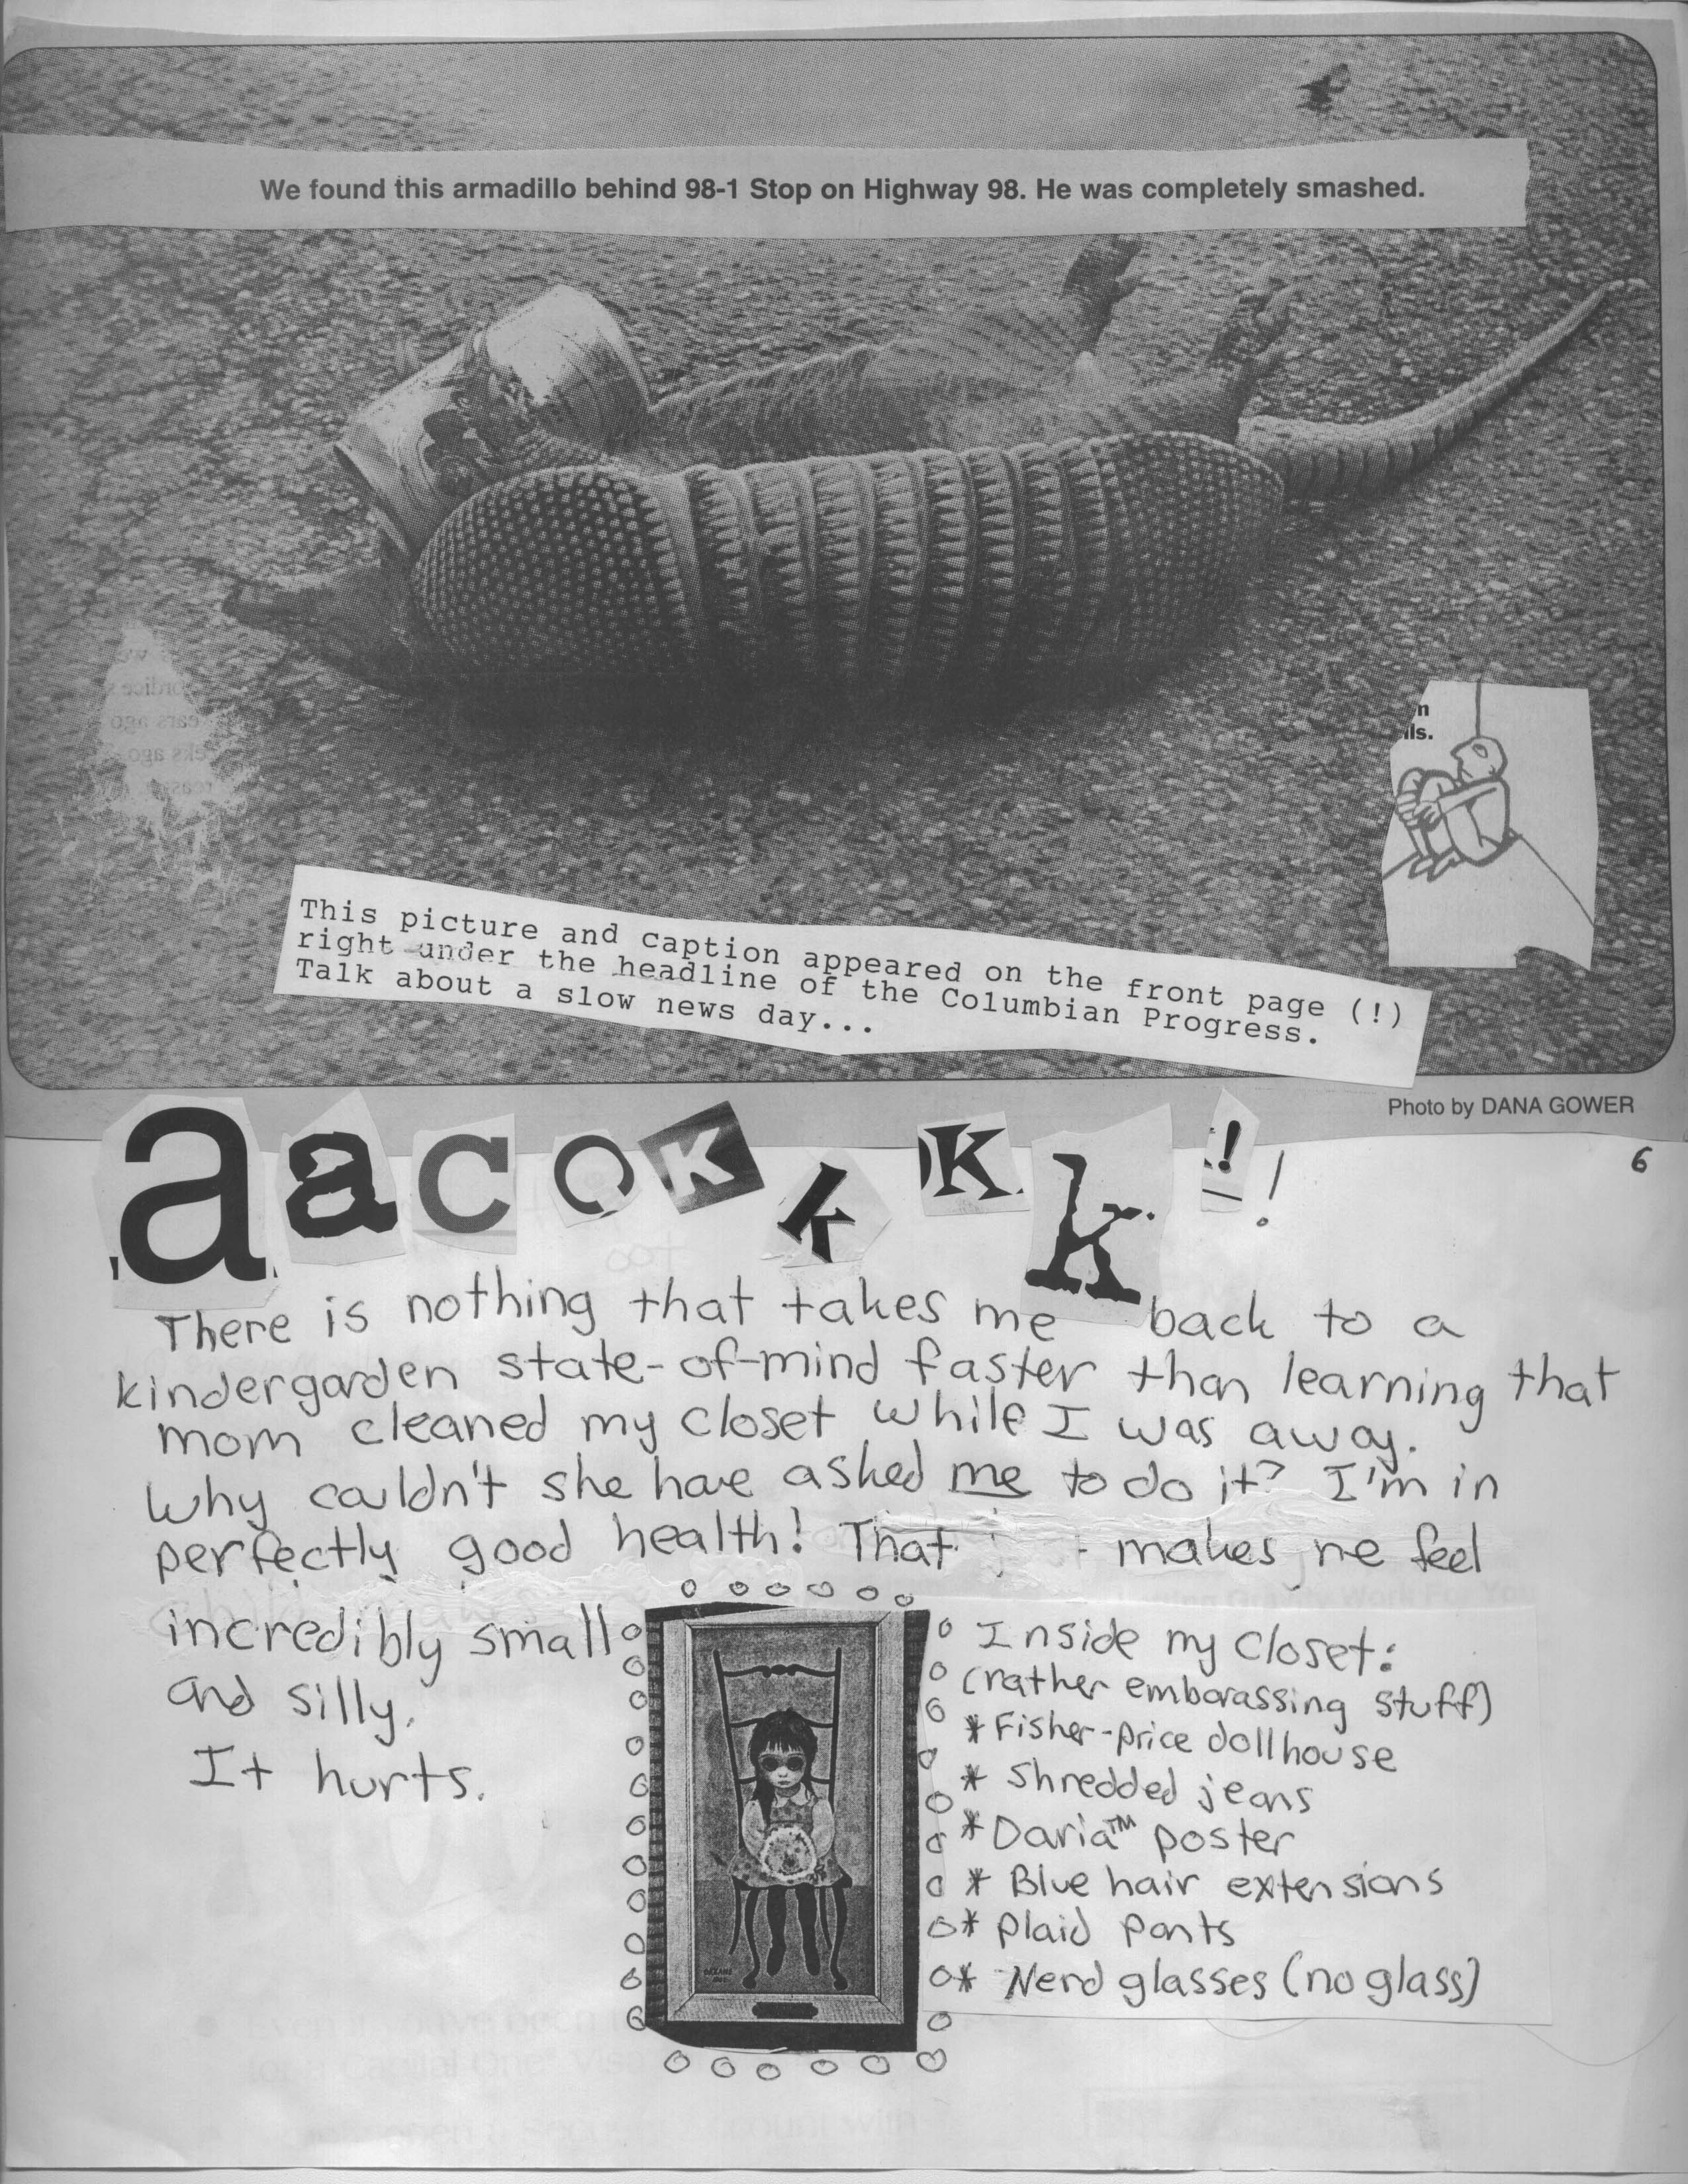 We found this armadillo behind 98-1 Stop on Highway 98. He was completely smashed.
n
lls.
This picture and caption appeared on the front page (!)
right under the headline of the Columbian Progress.
Talk about a slow news day...
Photo by DANA GOWER
6
aacckkkk!!
There is nothing that takes me back to a
kindergarden state-of-mind faster than learning that
mom cleaned my closet while I was away.
Why couldn't she have asked me to do it? I'm in
perfectly good health! That makes me feel
incredibly small
and silly.
It hurts.
Inside my closet:
(rather embarassing stuff)
* Fisher-price dollhouse
* Shredded jeans
* Daria™ poster
* Blue hair extensions
* plaid pants
* Nerd glasses (no glass)